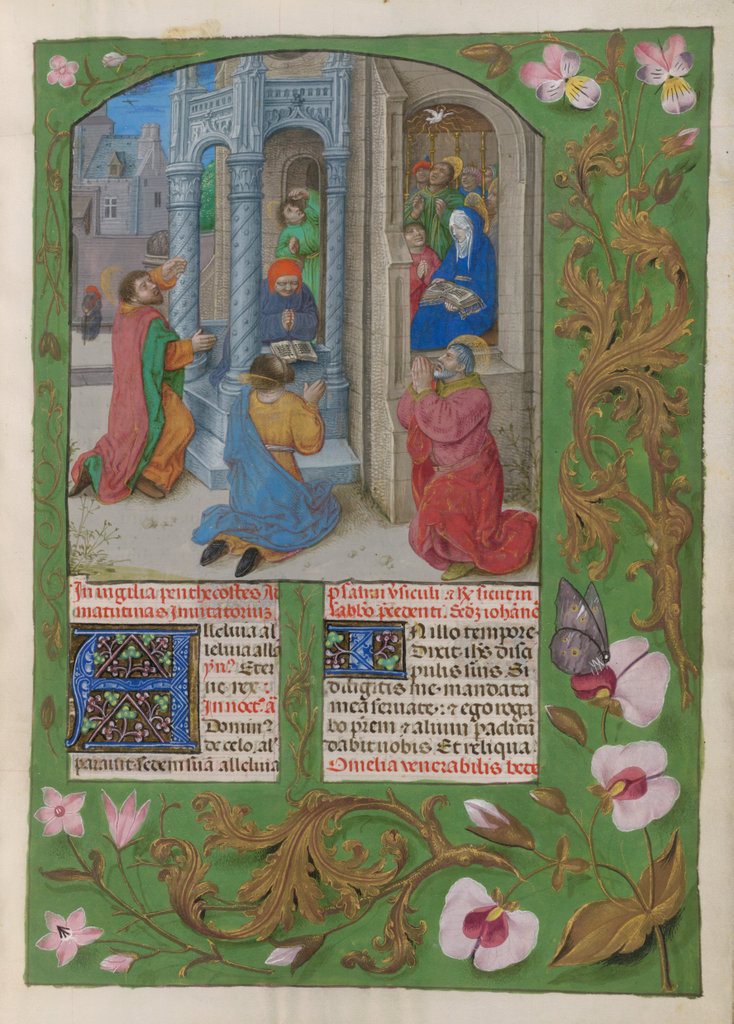 In vigilia penthecostes Ad
matutinas Invitatorium
Alleluia al
leluia alla
yn? Eter
ne rex :
In noct? ā
Domin?
de celo. al?
parauit sedem suā alleluia
psalmi vsiculi ⁊ R̶ sicut in
sabbo p̄cedenti. Scd̄z iohānē
IN illo tempore
Dixit ih̄s disci
pulis suis. Si
diligitis me mandata
mea seruate: ⁊ ego roga
bo pr̄em ⁊ alium paclitū
dabit uobis Et reliqua.
Omelia venerabilis bede